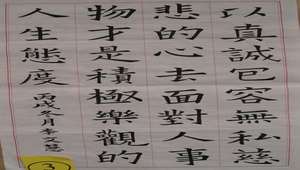 以真誠包容無私慈
悲的心去面對人事
物才是積極樂觀的
人生態度
丙戌冬月李文慧
3